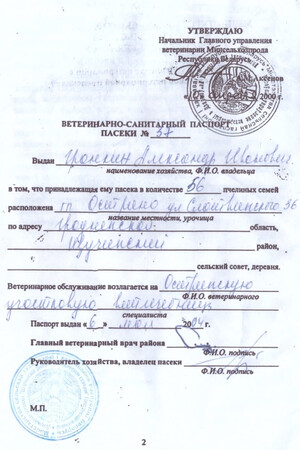 УТВЕРЖДАЮ
Начальник Главного управления
ветеринарии Минсельхозпрода
Республики Беларусь
А.М. Аксенов
2000 г.
ВЕТЕРИНАРНО-САНИТАРНЫЙ ПАСПОРТ
ПАСЕКИ № 37
Выдан Александр
наименование хозяйства, Ф.И.О. владельца
в том, что принадлежащая ему пасека в количестве 56 пчелиных семей
расположена гп Острино ул 36
название местности, урочища
по адресу Гродненской область,
Щучинский район,
сельский совет, деревня.
Ветеринарное обслуживание возлагается на Остринскую
Ф.И.О. ветеринарного
участковую ветлечебницу
специалиста
Паспорт выдан «6» мая 2004 г.
Главный ветеринарный врач района
Ф.И.О. подпись
Руководитель хозяйства, владелец пасеки
Ф.И.О. подпись
М.П.
2